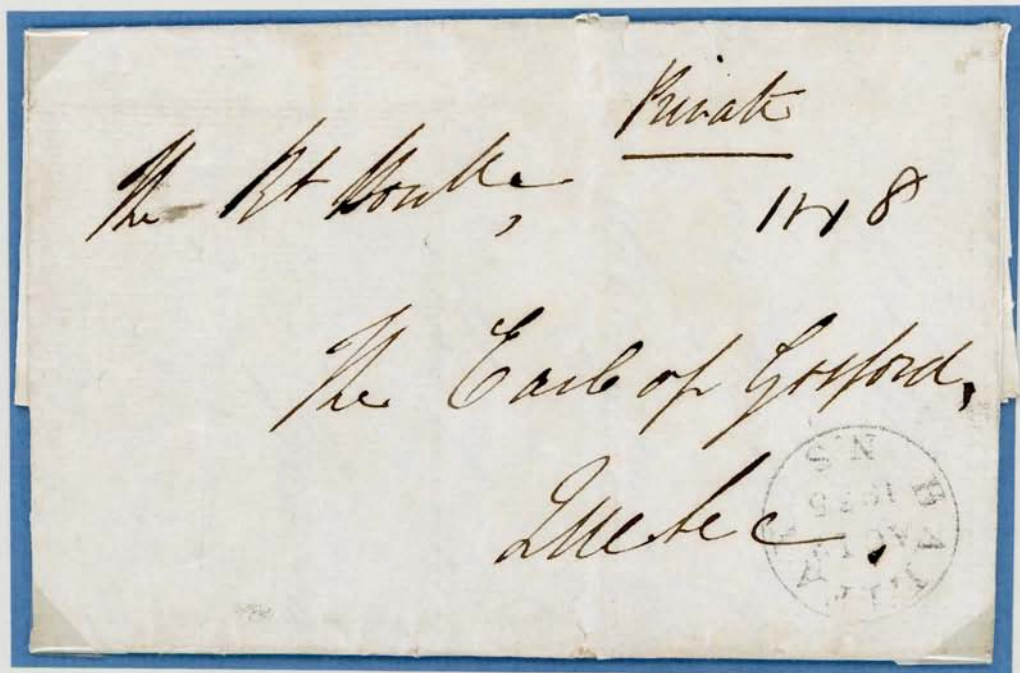 Private
The Rt Honble,
The Earl of Gosford,
Quebec,
HALIFAX
1835
N S